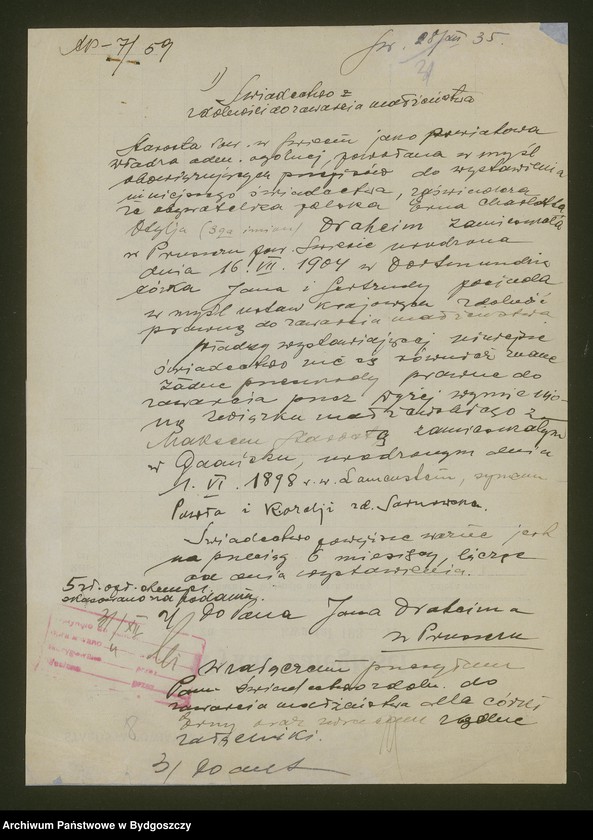 AP-7/59
Św. 28/XII 35.
1) Świadectwo z
zdolności do zawarcia małżeństwa
Starosta pow. w Świeciu jako powiatowa
władza adm. ogólnej, powołana w myśl
obowiązujących przepisów do wystawienia
niniejszego świadectwa, zaświadcza
że obywatelka polska Erna Charlotta
Otylja (3ga imion) Draheim zamieszkała
w Pruszczu pow. Świecie urodzona
dnia 16. VII. 1904 w Dortmundzie
córka Jana i Gertrudy posiada
w myśl ustaw krajowych zdolność
prawną do zawarcia małżeństwa
Władzy wystawiającej niniejsze
świadectwo nie są również znane
żadne przeszkody prawne do
zawarcia przez wyżej wymienio-
ną związku małżeńskiego z
Maksem zamieszkałym
w Gdańsku, urodzonym dnia
1. VI. 1898 r. w synem
Pawła i
Świadectwo powyższe ważne jest
na przeciąg 6 miesięcy, licząc
od dnia wystawienia.
5 zł. opł. stempl.
skasowano na podaniu.
31/XII
2/ Do Pana Jana Draheima
w Pruszczu
W załączeniu przesyłam
Panu świadectwo zdoln. do
zawarcia małżeństwa dla córki
Erny oraz zwracam
załączniki.
3/ Do akt
8
Archiwum Państwowe w Bydgoszczy